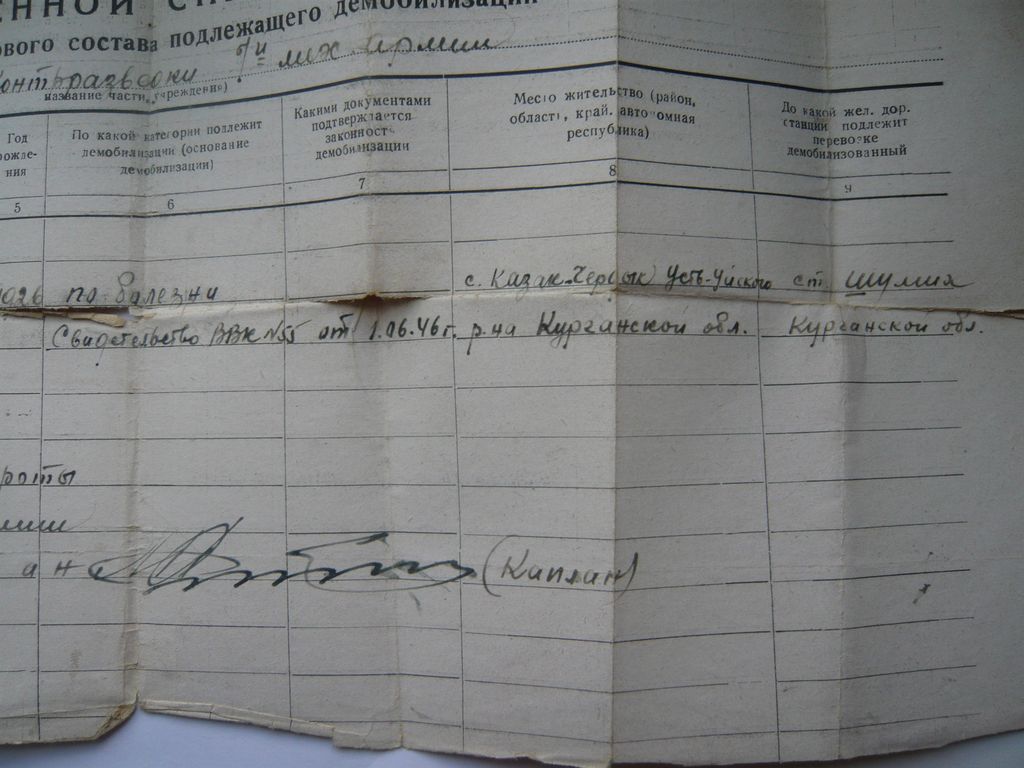 ЕННОЙ СП
ового состава подлежащего демобилизации
контрразведки 8й мех армии
название части, учреждения)
Год рожде-
ния
По какой категории подлежит
демобилизации (основание
демобилизации)
Какими документами
подтверждается
законность
демобилизации
Место жительство (район,
область, край, автономная
республика)
До какой жел. дор.
станции подлежит
перевозке
демобилизованный
5 6 7 8 9
1926 по болезни с. Казак-Чердык Усть-Уйского ст Шумиха
Свидетельство ВВК №55 от 1.06.46 г. р-на Курганской обл. Курганской обл.
роты
мии
ан (Каплан)